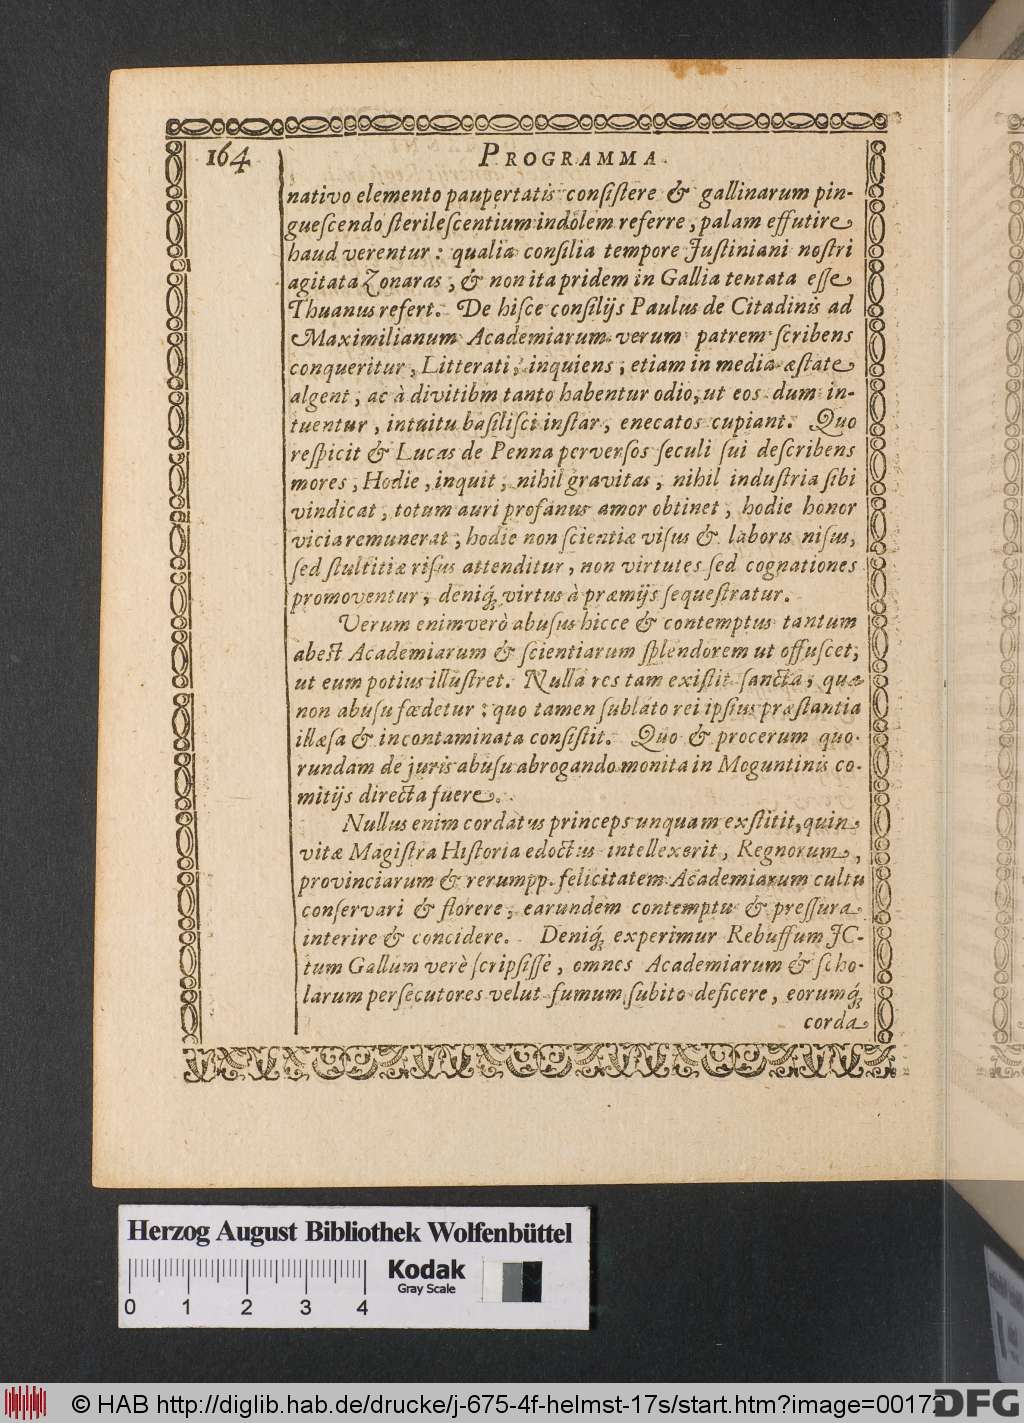 164 PROGRAMMA.
nativo elemento paupertatis conſiſtere & gallinarum pin-
gueſcendo ſterileſcentium indolem referre, palam effutire
haud verentur: qualia conſilia tempore Juſtiniani noſtri
agitata Zonaras, & non ita pridem in Gallia tentata eſſe
Thuanus refert. De hiſce conſilijs Paulus de Citadinis ad
Maximilianum Academiarum verum patrem ſcribens
conqueritur, Litterati, inquiens, etiam in media æſtate
algent, ac à divitibus tanto habentur odio, ut eos dum in-
tuentur, intuitu baſiliſci inſtar, enecatos cupiant. Quo
reſpicit & Lucas de Penna perverſos ſeculi ſui deſcribens
mores, Hodie, inquit, nihil gravitas, nihil induſtria ſibi
vindicat, totum auri profanus amor obtinet, hodie honor
vicia remunerat, hodie non ſcientiæ viſus & laboris niſus,
ſed ſtultitiæ riſus attenditur, non virtutes ſed cognationes
promoventur, deniq́; virtus à præmijs ſequeſtratur.
Verum enimverò abuſus hicce & contemptus tantum
abest Academiarum & ſcientiarum ſplendorem ut offuſcet,
ut eum potius illuſtret. Nulla res tam exiſtit ſancta, quæ
non abuſu fœdetur: quo tamen ſublato rei ipſius præſtantia
illæſa & incontaminata conſiſtit. Quo & procerum quo-
rundam de juris abuſu abrogando monita in Moguntinis co-
mitijs directa fuere.
Nullus enim cordatus princeps unquam exſtitit, quin
vitæ Magiſtra Hiſtoria edoctus intellexerit, Regnorum,
provinciarum & rerumpp. felicitatem Academiarum cultu
conſervari & florere, earundem contemptu & preſſura
interire & concidere. Deniq́; experimur Rebuffum JC-
tum Gallum verè ſcripſiſſe, omnes Academiarum & ſcho-
larum perſecutores velut fumum ſubito deficere, eorumq́;
corda
Herzog August Bibliothek Wolfenbüttel
0 1 2 3 4
Kodak
Gray Scale
© HAB http://diglib.hab.de/drucke/j-675-4f-helmst-17s/start.htm?image=00172
DFG